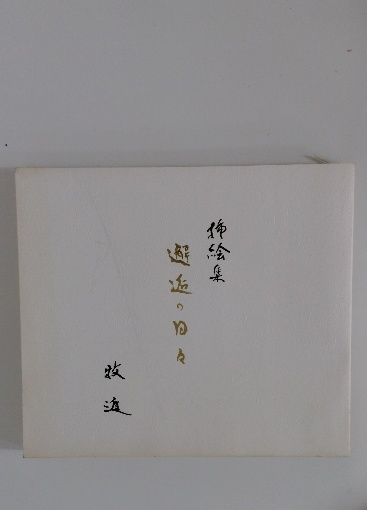 挿絵集
邂逅の日々
牧渡